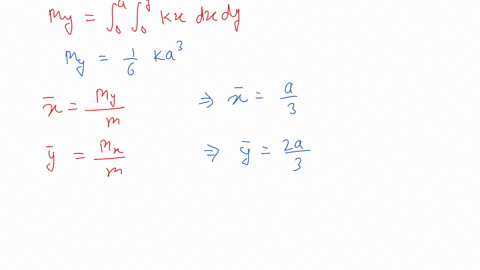 My = ∫₀ᵃ ∫₀ʸ kx dx dy
My = 1/6 ka³
x̄ = My/m ⇒ x̄ = a/3
ȳ = Mx/m ⇒ ȳ = 2a/3